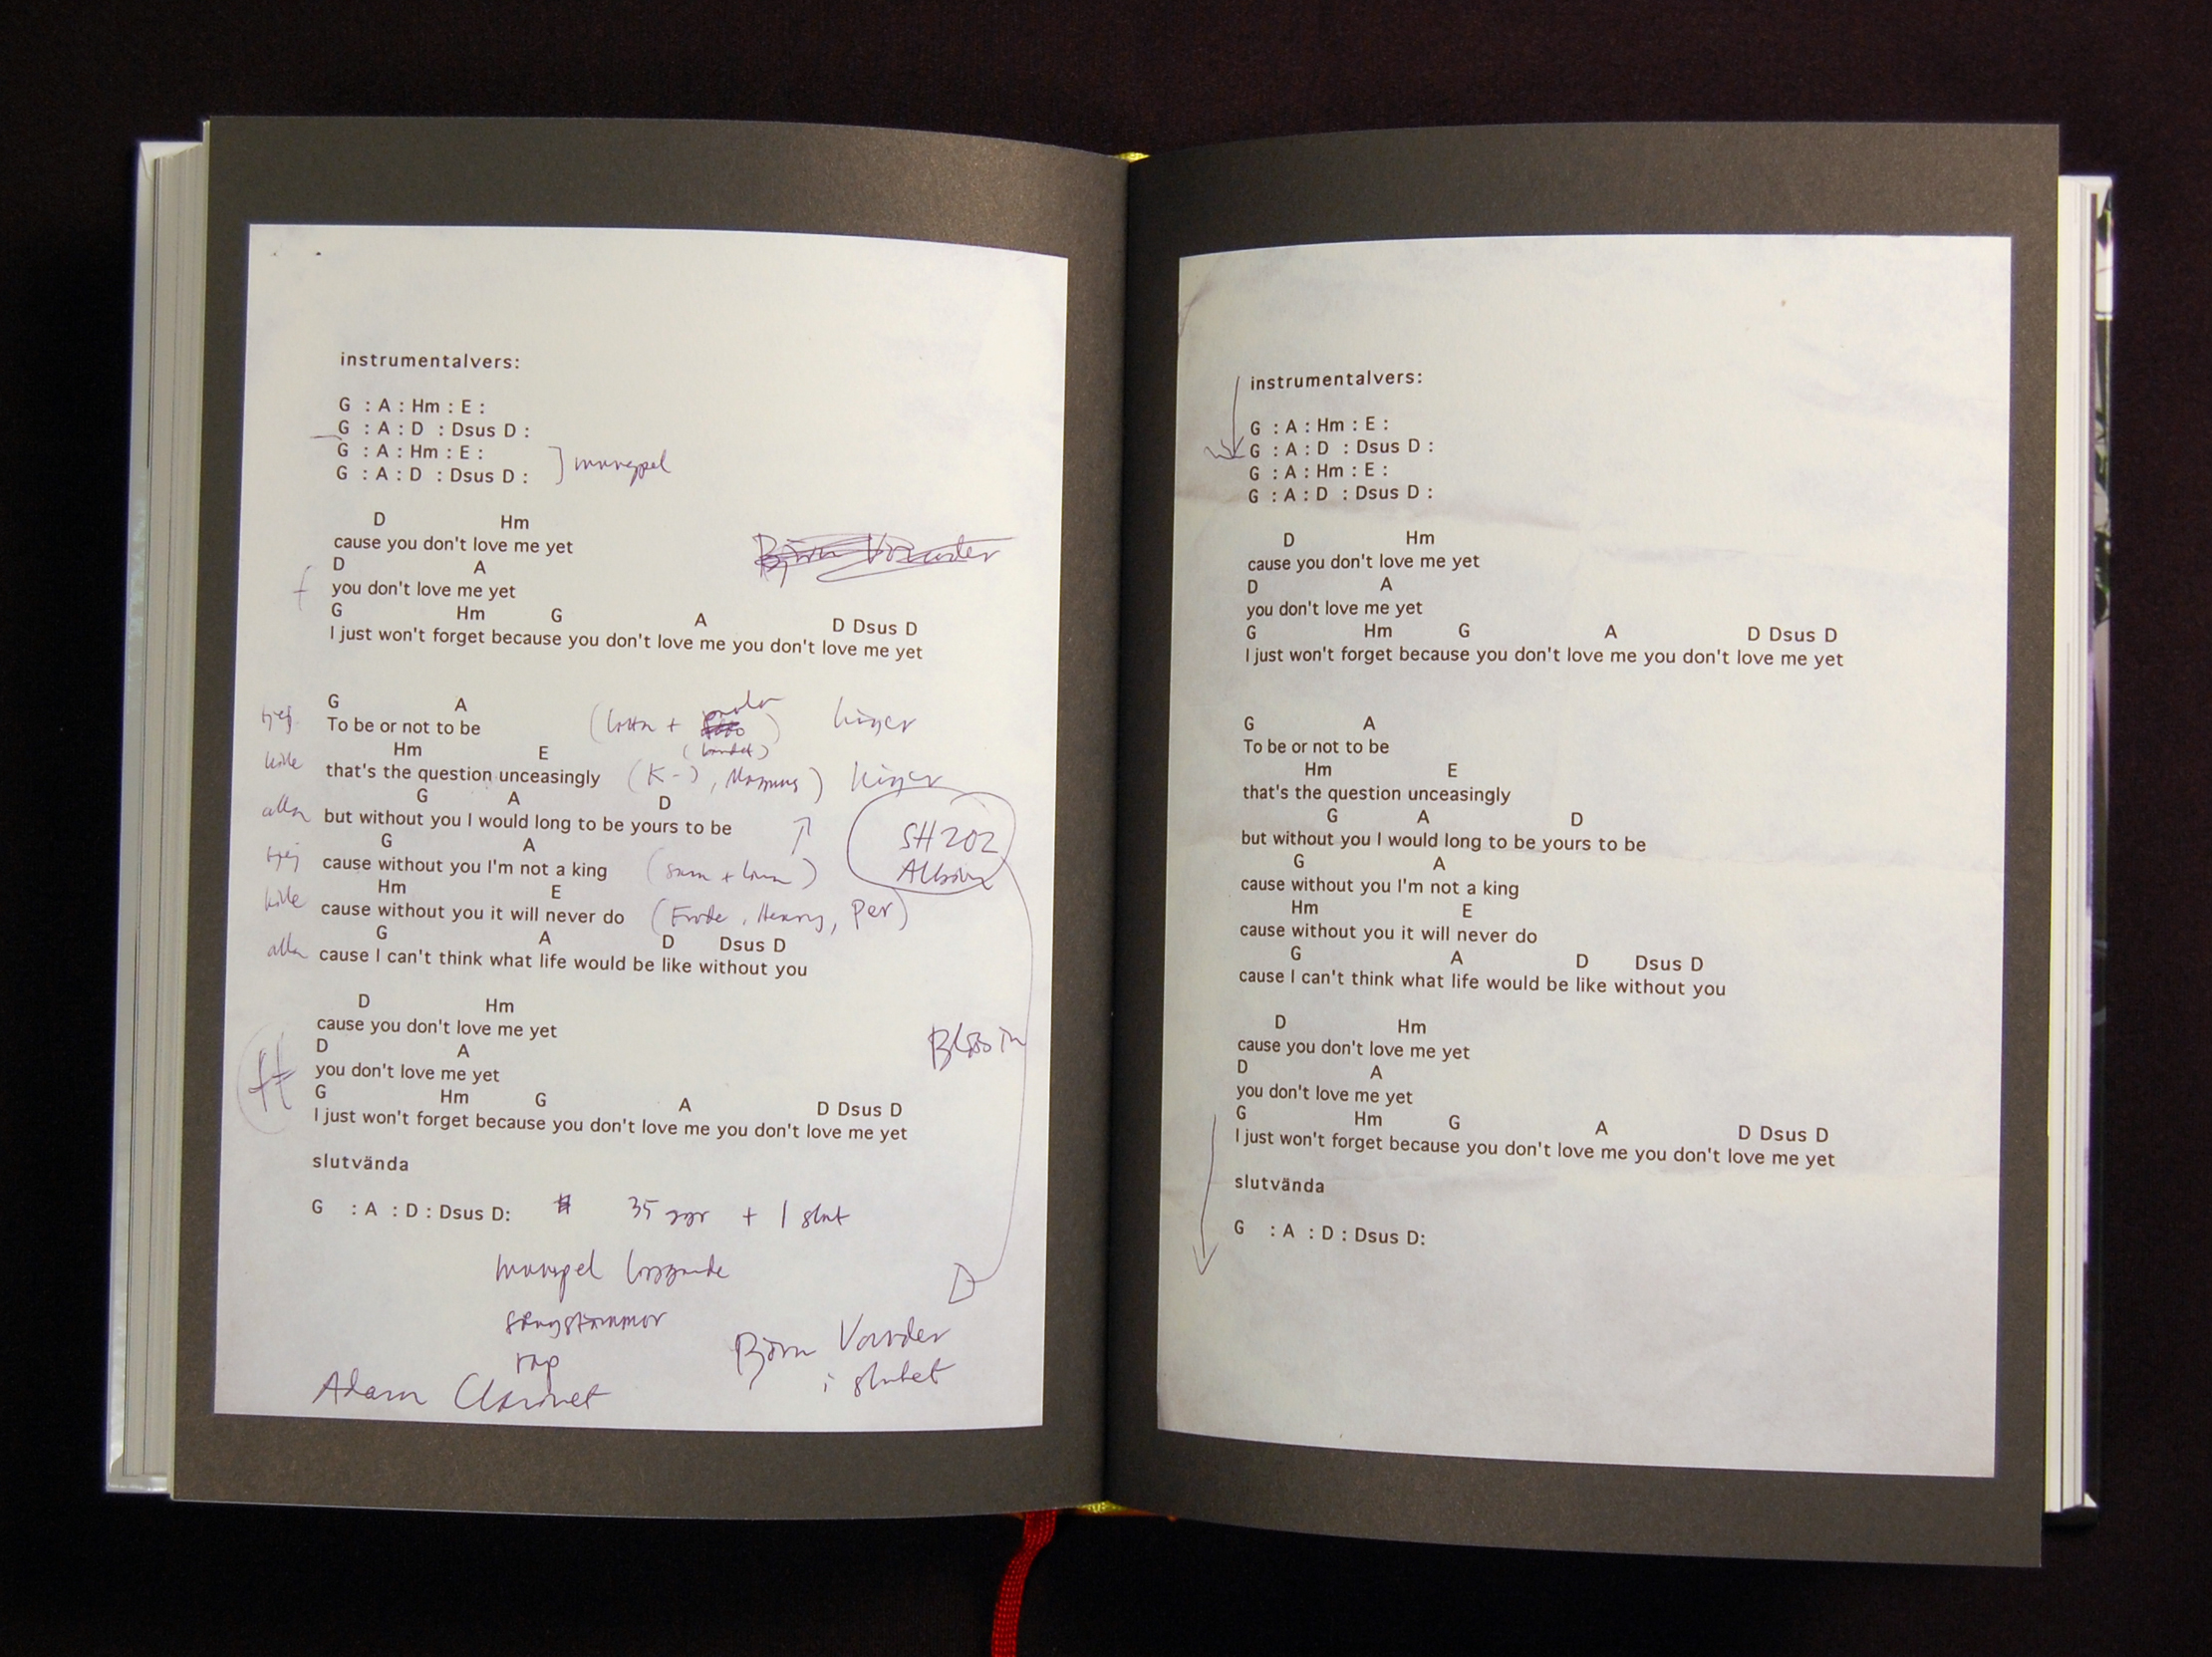 instrumentalvers:
G : A : Hm : E :
G : A : D : Dsus D :
G : A : Hm : E :
G : A : D : Dsus D :
munspel
D Hm
cause you don't love me yet
D A
f you don't love me yet
G Hm G A D Dsus D
I just won't forget because you don't love me you don't love me yet
Björn
G A
tjej To be or not to be (Lotta + ) höger
(bandet)
Hm E
kille that's the question unceasingly (K-), Magnus) höger
G A D
alla but without you I would long to be yours to be
SH 202
G A
tjej cause without you I'm not a king
Hm E
kille cause without you it will never do (Frode, Henry, Per)
G A D Dsus D
alla cause I can't think what life would be like without you
D Hm
cause you don't love me yet
D A
ff you don't love me yet
G Hm G A D Dsus D
I just won't forget because you don't love me you don't love me yet
slutvända
G : A : D : Dsus D: 35 ggr + 1 slut
munspel
sångstämmor
rap
Adam Clarinet
Björn
i slutet
instrumentalvers:
G : A : Hm : E :
G : A : D : Dsus D :
G : A : Hm : E :
G : A : D : Dsus D :
D Hm
cause you don't love me yet
D A
you don't love me yet
G Hm G A D Dsus D
I just won't forget because you don't love me you don't love me yet
G A
To be or not to be
Hm E
that's the question unceasingly
G A D
but without you I would long to be yours to be
G A
cause without you I'm not a king
Hm E
cause without you it will never do
G A D Dsus D
cause I can't think what life would be like without you
D Hm
cause you don't love me yet
D A
you don't love me yet
G Hm G A D Dsus D
I just won't forget because you don't love me you don't love me yet
slutvända
G : A : D : Dsus D: